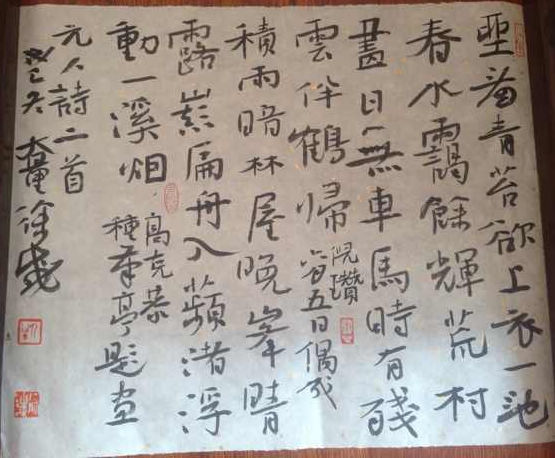 坐看青苔欲上衣一池
春水靄餘輝荒村
盡日無車馬時有殘
雲伴鶴歸
倪瓚
五日偶成
積雨暗林屋晚峯晴
露巔扁舟入蘋渚浮
動一溪烟
高克恭
種筆亭題畫
元人詩二首
癸巳冬 徐